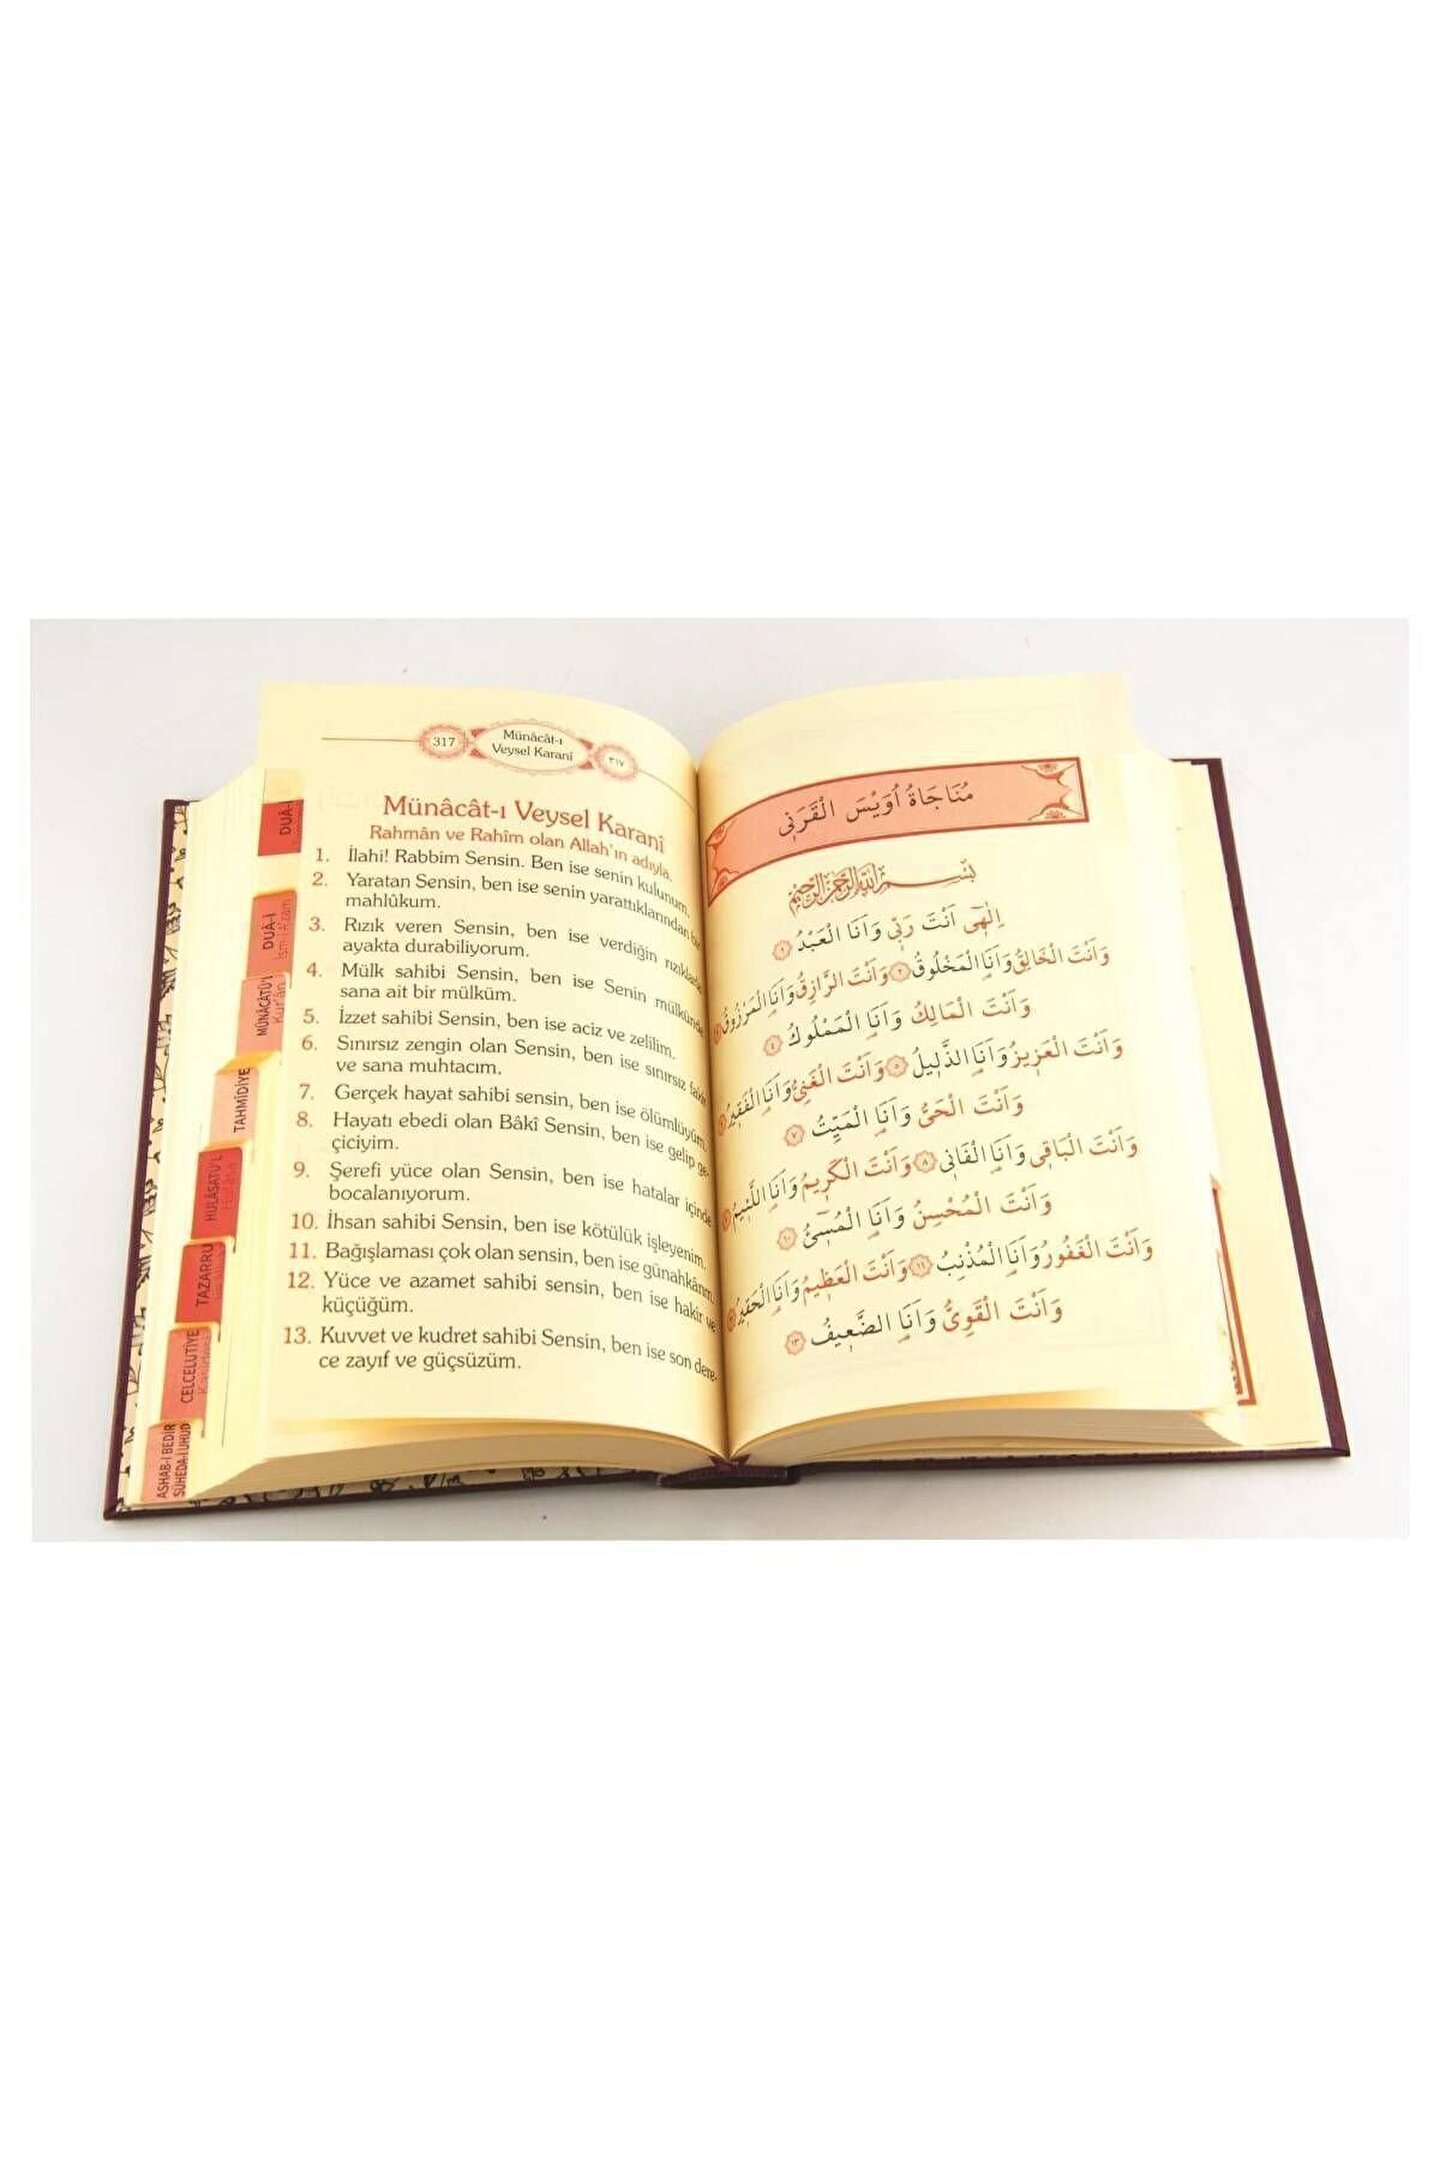 317
Münâcât-ı
Veysel Karanî
٣١٧
Münâcât-ı Veysel Karanî
Rahmân ve Rahîm olan Allah'ın adıyla.
1. İlahi! Rabbim Sensin. Ben ise senin kulunum.
2. Yaratan Sensin, ben ise senin yarattıklarından bir
mahlûkum.
3. Rızık veren Sensin, ben ise verdiğin rızıklarla
ayakta durabiliyorum.
4. Mülk sahibi Sensin, ben ise Senin mülkünde
sana ait bir mülküm.
5. İzzet sahibi Sensin, ben ise aciz ve zelilim.
6. Sınırsız zengin olan Sensin, ben ise sınırsız fakir
ve sana muhtacım.
7. Gerçek hayat sahibi sensin, ben ise ölümlüyüm.
8. Hayatı ebedi olan Bâkî Sensin, ben ise gelip ge-
çiciyim.
9. Şerefi yüce olan Sensin, ben ise hatalar içinde
bocalanıyorum.
10. İhsan sahibi Sensin, ben ise kötülük işleyenim.
11. Bağışlaması çok olan sensin, ben ise günahkârım.
12. Yüce ve azamet sahibi sensin, ben ise hakir ve
küçüğüm.
13. Kuvvet ve kudret sahibi Sensin, ben ise son dere-
ce zayıf ve güçsüzüm.
DUÂ-İ
DUÂ-İ
İsm-i A'zam
MÜNÂCÂTÜ'L
Kur'ân
TAHMÎDİYE
HULÂSATÜ'L
TAZARRU
CELCELUTİYE
ASHAB-I BEDİR
ŞÜHEDA-İ UHUD
مُنَاجَاةُ اُوَيْسَ الْقَرَنِى
بِسْمِ اللّٰهِ الرَّحْمٰنِ الرَّحِيمِ
اِلٰهِٓى اَنْتَ رَبِّى وَاَنَا الْعَبْدُ ١
وَاَنْتَ الْخَالِقُ وَاَنَا الْمَخْلُوقُ ٢ وَاَنْتَ الرَّازِقُ وَاَنَا الْمَرْزُوقُ ٣
وَاَنْتَ الْمَالِكُ وَاَنَا الْمَمْلُوكُ ٤
وَاَنْتَ الْعَزِيزُ وَاَنَا الذَّلِيلُ ٥ وَاَنْتَ الْغَنِىُّ وَاَنَا الْفَقِيرُ ٦
وَاَنْتَ الْحَىُّ وَاَنَا الْمَيِّتُ ٧
وَاَنْتَ الْبَاقِى وَاَنَا الْفَانِى ٨ وَاَنْتَ الْكَرِيمُ وَاَنَا اللَّئِيمُ ٩
وَاَنْتَ الْمُحْسِنُ وَاَنَا الْمُسِٓئُ ١٠
وَاَنْتَ الْغَفُورُ وَاَنَا الْمُذْنِبُ ١١ وَاَنْتَ الْعَظِيمُ وَاَنَا الْحَقِيرُ ١٢
وَاَنْتَ الْقَوِىُّ وَاَنَا الضَّعِيفُ ١٣